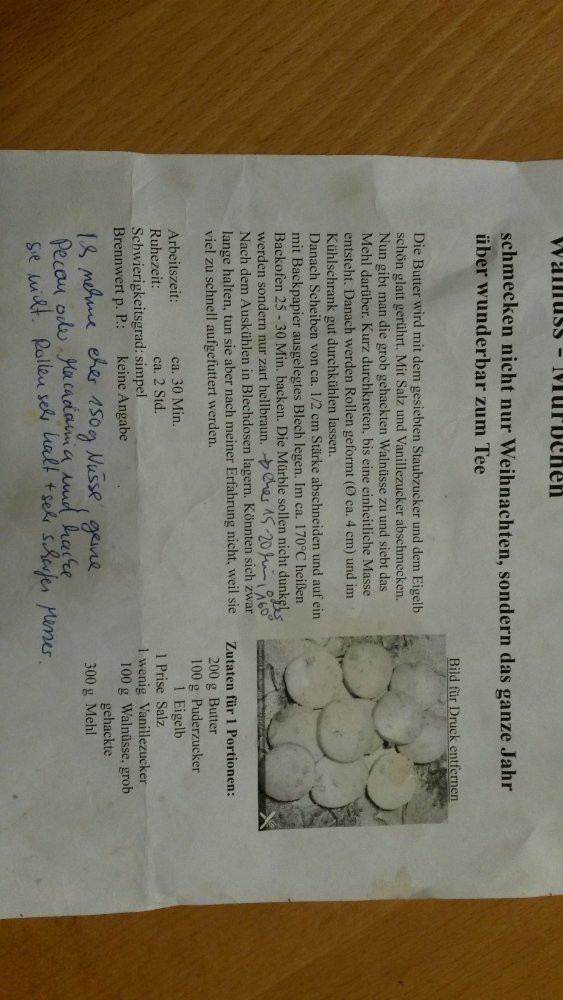 Walnuss - Mürbchen
schmecken nicht nur Weihnachten, sondern das ganze Jahr
über wunderbar zum Tee
Bild für Druck entfernen
Die Butter wird mit dem gesiebten Staubzucker und dem Eigelb
schön glatt gerührt. Mit Salz und Vanillezucker abschmecken.
Nun gibt man die grob gehackten Walnüsse zu und siebt das
Mehl darüber. Kurz durchkneten, bis eine einheitliche Masse
entsteht. Danach werden Rollen geformt (O ca. 4 cm) und im
Kühlschrank gut durchkühlen lassen.
Danach Scheiben von ca. 1/2 cm Stärke abschneiden und auf ein
mit Backpapier ausgelegtes Blech legen. Im ca. 170°C heißen
Backofen 25 - 30 Min. backen. Die Mürble sollen nicht dunkel
werden sondern nur zart hellbraun. → eher 15-20 min, oder 160°
Nach dem Auskühlen in Blechdosen lagern. Könnten sich zwar
lange halten, tun sie aber nach meiner Erfahrung nicht, weil sie
viel zu schnell aufgefuttert werden.
Zutaten für 1 Portionen:
200 g Butter
100 g Puderzucker
1 Eigelb
1 Prise Salz
1 wenig Vanillezucker
100 g Walnüsse, grob
gehackte
300 g Mehl
Arbeitszeit: ca. 30 Min.
Ruhezeit: ca. 2 Std.
Schwierigkeitsgrad: simpel
Brennwert p. P.: keine Angabe
Ich nehme eher 150g Nüsse, gerne
Pecan oder Macadamia und hacke
sie nicht Rollen sehr kalt + sehr scharfes Messer.